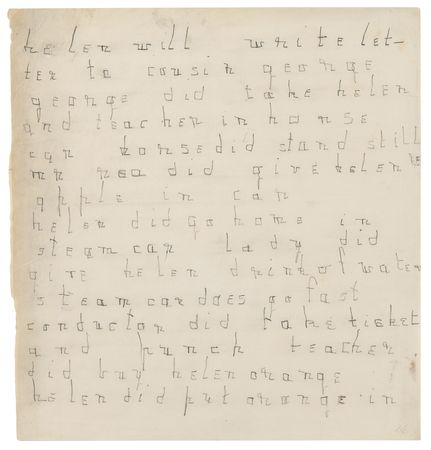 helen will write let-
ter to cousin george
george did take helen
and teacher in horse
car horse did stand still
mr did give helen
apple in car
helen did go home in
steam car lady did
give helen drink of water
steam car does go fast
conductor did take ticket
and punch teacher
did buy helen orange
helen did put orange in